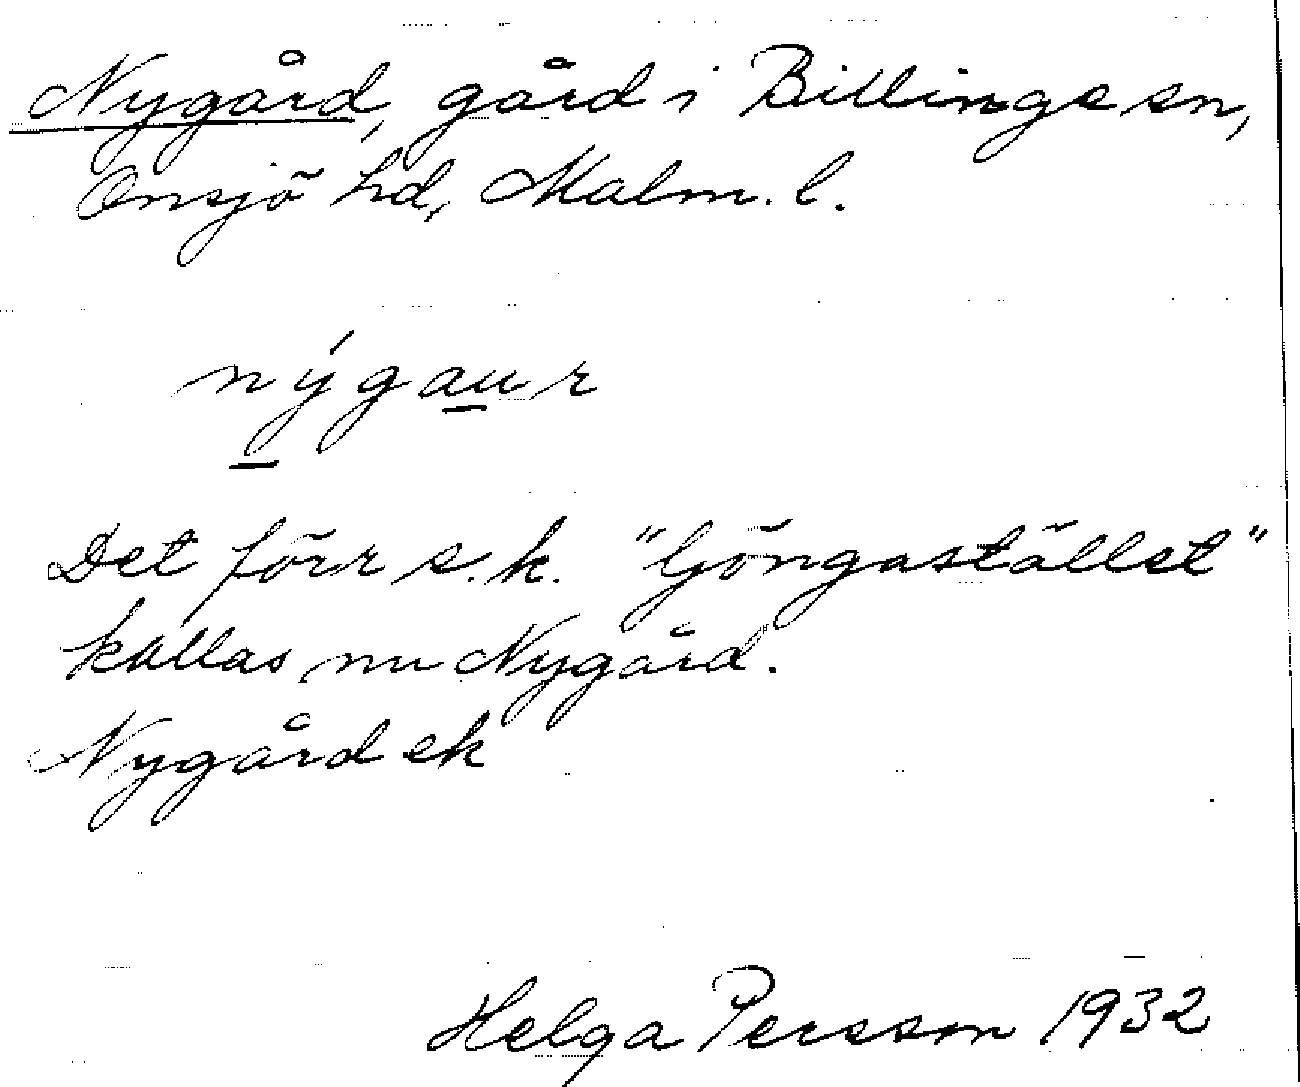 Nygård, gård i Billinge sn,
Onsjö hd, Malm. l.
nýgaur
Det förr s.k. "Göngastället"
kallas nu Nygård.
Nygård ek
Helga Persson 1932